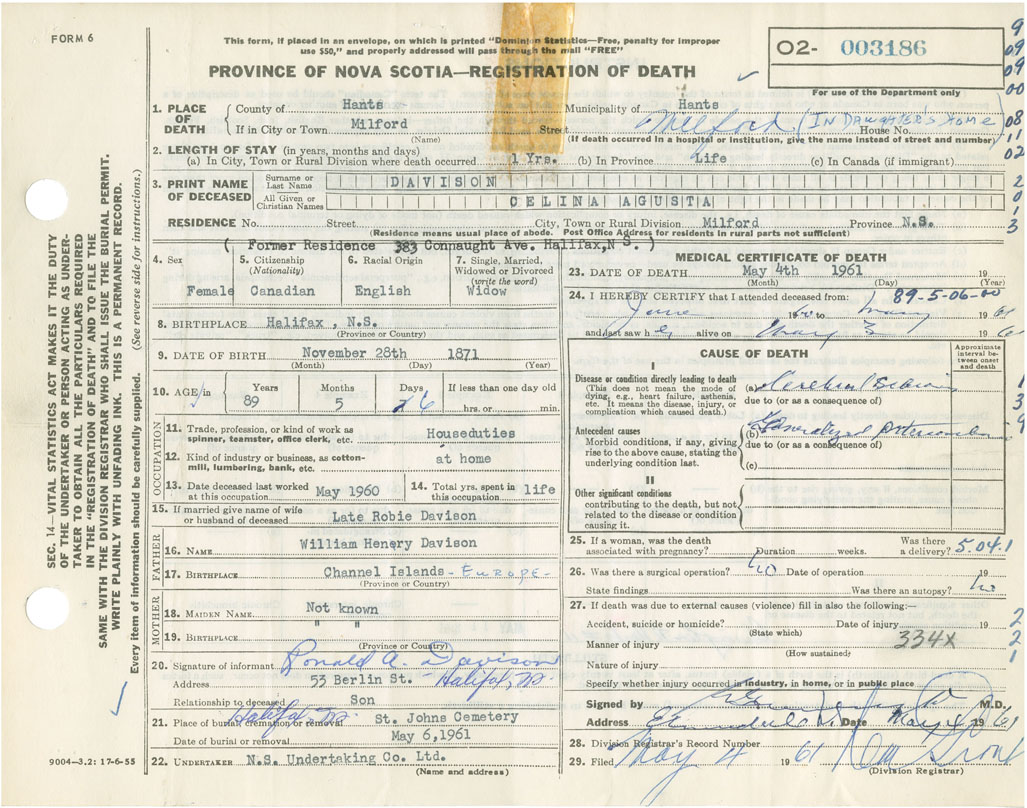 FORM 6
This form, if placed in an envelope, on which is printed "Dominion Statistics—Free, penalty for improper
use $50," and properly addressed will pass through the mail "FREE"
O2- 003186
For use of the Department only
PROVINCE OF NOVA SCOTIA—REGISTRATION OF DEATH
1. PLACE OF DEATH County of Hants Municipality of Hants
If in City or Town Milford Street Milford (IN DAUGHTER'S HOME) House No.
(Name) (If death occurred in a hospital or institution, give the name instead of street and number)
2. LENGTH OF STAY (in years, months and days)
(a) In City, Town or Rural Division where death occurred 1 Yrs. (b) In Province Life (c) In Canada (if immigrant)
3. PRINT NAME OF DECEASED Surname or Last Name DAVISON
All Given or Christian Names CELINA AGUSTA
RESIDENCE No. Street City, Town or Rural Division Milford Province N.S.
(Residence means usual place of abode. Post Office Address for residents in rural parts not sufficient)
( Former Residence 383 Connaught Ave. Halifax,N S. )
4. Sex Female
5. Citizenship (Nationality) Canadian
6. Racial Origin English
7. Single, Married, Widowed or Divorced (write the word) Widow
8. BIRTHPLACE Halifax , N.S.
(Province or Country)
9. DATE OF BIRTH November 28th 1871
(Month) (Day) (Year)
10. AGE in Years 89 Months 5 Days 6 If less than one day old hrs. or min.
OCCUPATION
11. Trade, profession, or kind of work as spinner, teamster, office clerk, etc. Houseduties
12. Kind of industry or business, as cotton-mill, lumbering, bank, etc. at home
13. Date deceased last worked at this occupation May 1960
14. Total yrs. spent in this occupation life
15. If married give name of wife or husband of deceased Late Robie Davison
FATHER
16. NAME William Henery Davison
17. BIRTHPLACE Channel Islands - EUROPE -
(Province or Country)
MOTHER
18. MAIDEN NAME Not known
19. BIRTHPLACE " "
(Province or Country)
20. Signature of informant Ronald A. Davison
Address 53 Berlin St. - Halifax, NS
Relationship to deceased Son
21. Place of burial cremation or removal Halifax NS St. Johns Cemetery
Date of burial or removal May 6,1961
22. UNDERTAKER N.S. Undertaking Co. Ltd.
(Name and address)
MEDICAL CERTIFICATE OF DEATH
23. DATE OF DEATH May 4th 1961 19
(Month) (Day) (Year)
24. I HEREBY CERTIFY that I attended deceased from: 89-5-06-00
June 19 60 to May 19 61
and last saw h er alive on May 3 19 61
CAUSE OF DEATH
Approximate interval between onset and death
I
Disease or condition directly leading to death
(This does not mean the mode of dying, e.g., heart failure, asthenia, etc. It means the disease, injury, or complication which caused death.)
(a) Cerebral
due to (or as a consequence of)
Antecedent causes
Morbid conditions, if any, giving rise to the above cause, stating the underlying condition last.
(b) Generalized
due to (or as a consequence of)
(c)
II
Other significant conditions
contributing to the death, but not related to the disease or condition causing it.
25. If a woman, was the death associated with pregnancy? Duration weeks. Was there a delivery? 5.04.1
26. Was there a surgical operation? no Date of operation 19
State findings Was there an autopsy? no
27. If death was due to external causes (violence) fill in also the following:—
Accident, suicide or homicide? Date of injury 19
(State which)
Manner of injury 334X
(How sustained)
Nature of injury
Specify whether injury occurred in industry, in home, or in public place
Signed by M.D.
Address Date May 4 19 61
28. Division Registrar's Record Number
29. Filed May 4 19 61
(Division Registrar)
SEC. 14—VITAL STATISTICS ACT MAKES IT THE DUTY
OF THE UNDERTAKER OR PERSON ACTING AS UNDER-
TAKER TO OBTAIN ALL THE PARTICULARS REQUIRED
IN THE "REGISTRATION OF DEATH" AND TO FILE THE
SAME WITH THE DIVISION REGISTRAR WHO SHALL ISSUE THE BURIAL PERMIT.
WRITE PLAINLY WITH UNFADING INK. THIS IS A PERMANENT RECORD.
Every item of information should be carefully supplied. (See reverse side for instructions.)
9004—3.2: 17-6-55
9
09
09
00
08
11
02
2
0
1
3
1
3
9
2
2
1